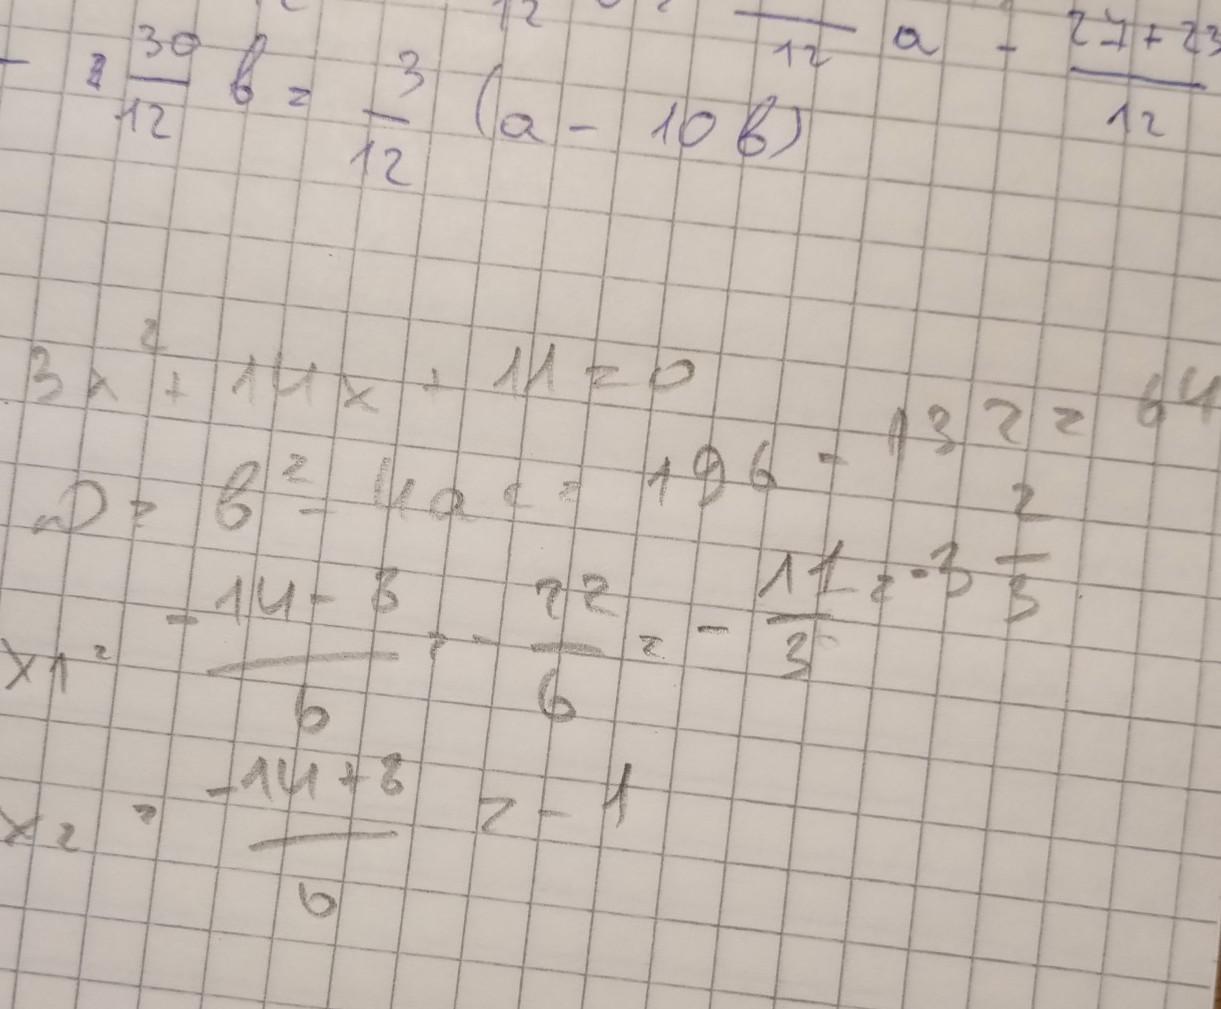 12 a - 27+23
- 30/12 b = 3/12 (a - 10b)
12
3x² + 14x + 11 = 0
D = b² - 4ac = 196 - 132 = 64
x1 = -14-8/6 = -22/6 = -11/3 = -3 2/3
x2 = -14+8/6 = -1